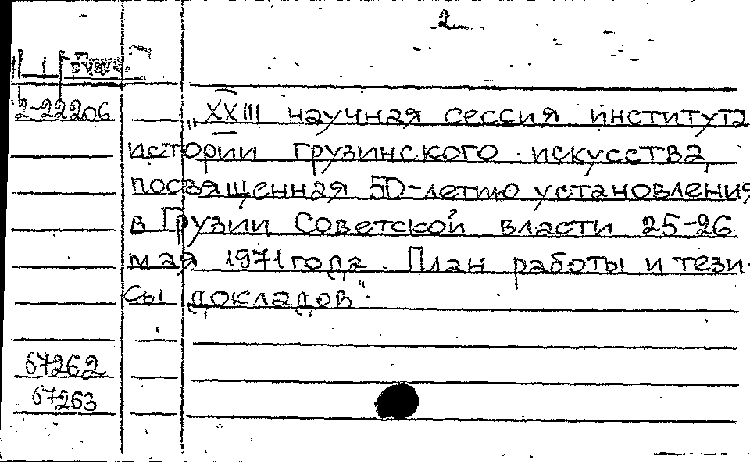 2
2-22206 „XXIII научная сессия института
истории грузинского искусства,
посвященная 50-летию установления
в Грузии Советской власти 25-26
мая 1971 года. План работы и тези-
сы докладов"
67262
67263